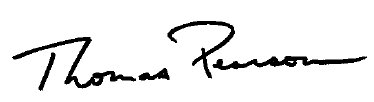 Thomas Pearson